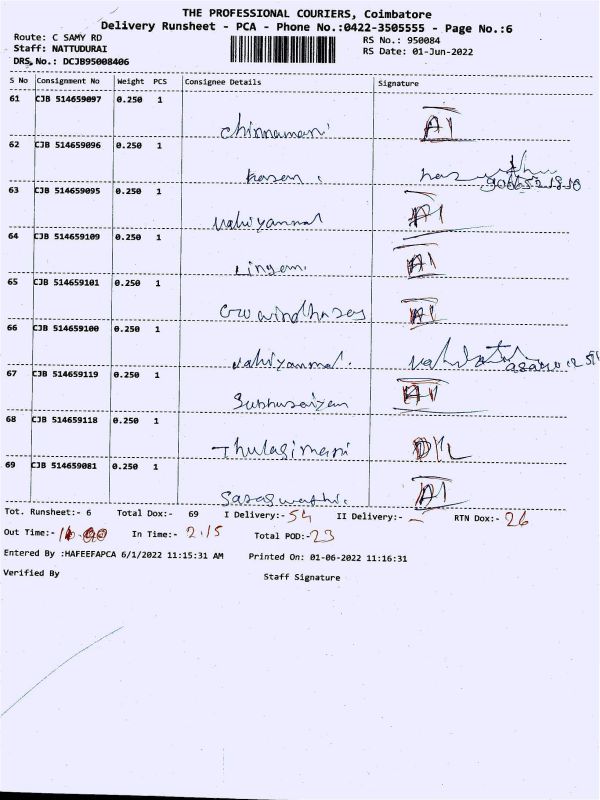 THE PROFESSIONAL COURIERS, Coimbatore
Delivery Runsheet - PCA - Phone No.:0422-3505555 - Page No.:6
Route: C SAMY RD
RS No.: 950084
Staff: NATTUDURAI
RS Date: 01-Jun-2022
DRS No.: DCJB95008406
S No Consignment No Weight PCS Consignee Details Signature
61 CJB 514659097 0.250 1
Chinnamani A1
62 CJB 514659096 0.250 1
63 CJB 514659095 0.250 1
A1
64 CJB 514659109 0.250 1
Lingam A1
65 CJB 514659101 0.250 1
A1
66 CJB 514659100 0.250 1
67 CJB 514659119 0.250 1
A1
68 CJB 514659118 0.250 1
Thulasimani D/L
69 CJB 514659081 0.250 1
Saraswathi. A1
Tot. Runsheet:- 6 Total Dox:- 69 I Delivery:- 54 II Delivery:- - RTN Dox:- 26
Out Time:- In Time:- 2.15 Total POD:- 23
Entered By :HAFEEFAPCA 6/1/2022 11:15:31 AM Printed On: 01-06-2022 11:16:31
Verified By
Staff Signature